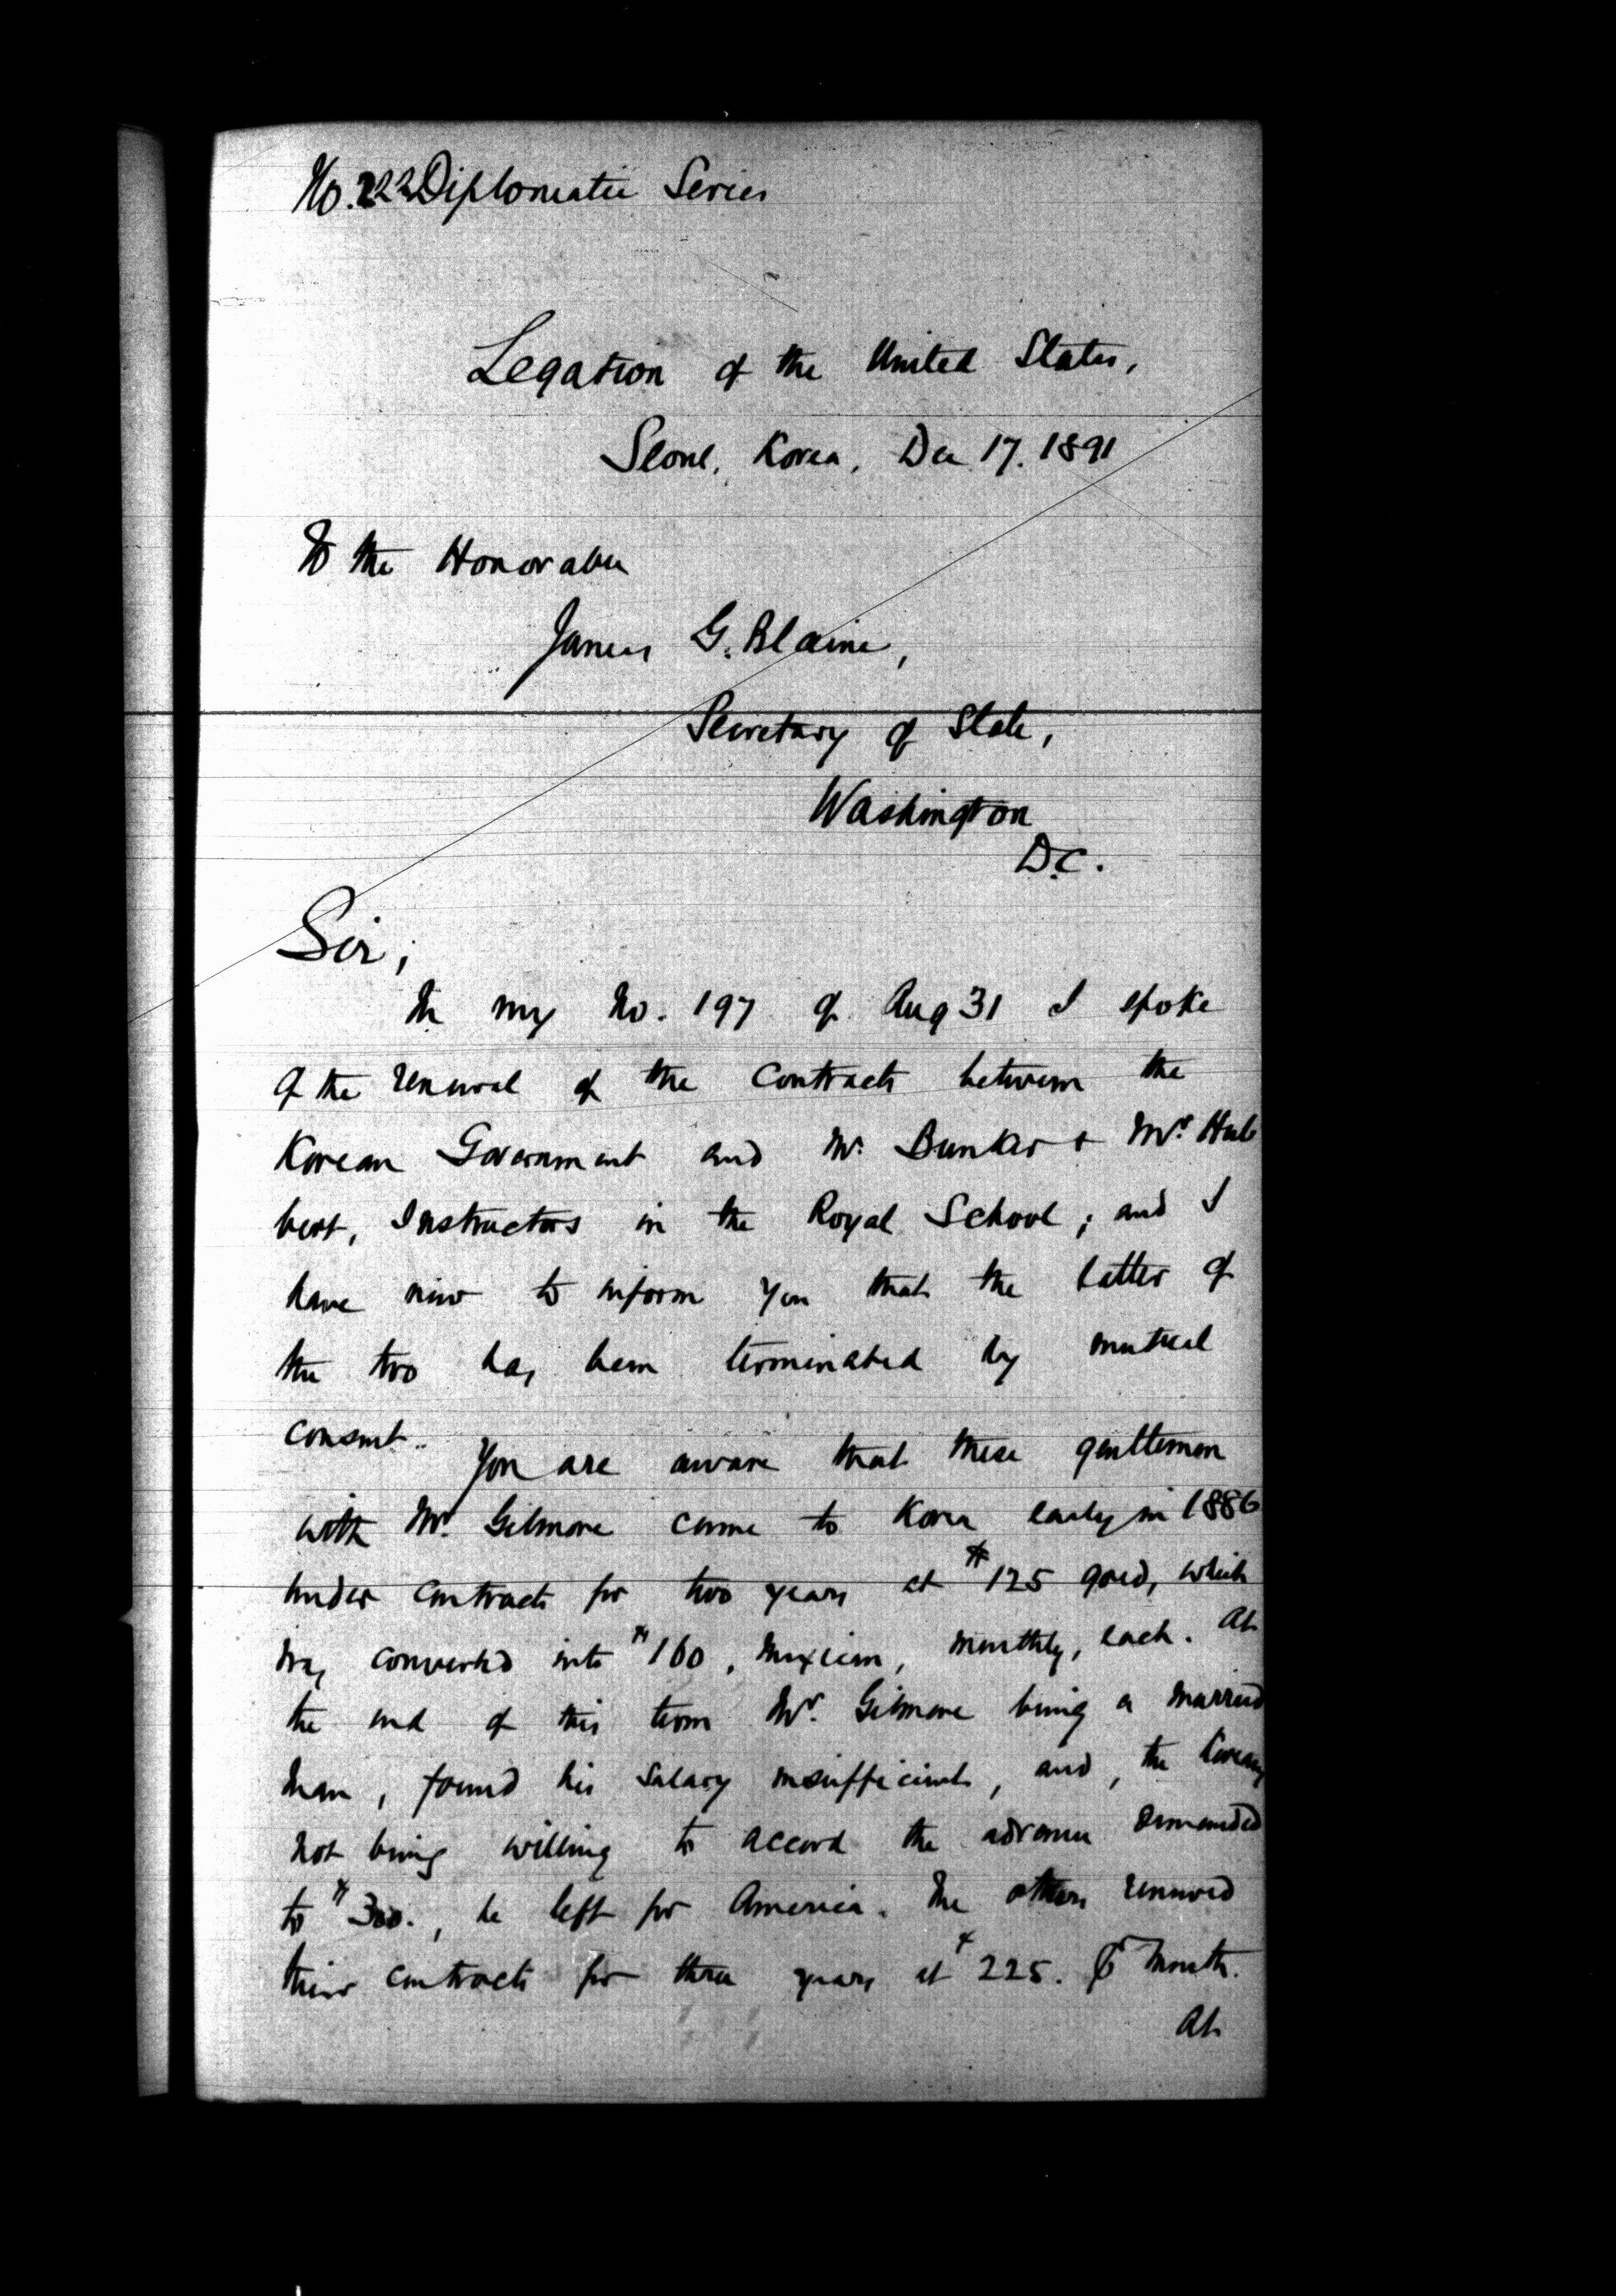 No. 222 Diplomatic Series
Legation of the United States,
Seoul, Korea, Dec 17. 1891
To the Honorable
James G. Blaine,
Secretary of State,
Washington
D.C.
Sir;
In my No. 197 of Aug 31 I spoke
of the renewal of the contracts between the
Korean Government and Mr. Bunker & Mr. Hul
bert, Instructors in the Royal School; and I
have now to inform you that the latter of
the two has been terminated by mutual
consent.
You are aware that these gentlemen
with Mr. Gilmore came to Korea early in 1886
under contracts for two years at $125 gold, which
was converted into $160, Mexican, monthly, each. At
the end of this term Mr. Gilmore being a married
man, found his salary insufficient, and, the Koreans
not being willing to accord the advance demanded
to $300., he left for America. The others renewed
their contracts for three years at $225. ⅌ month.
At